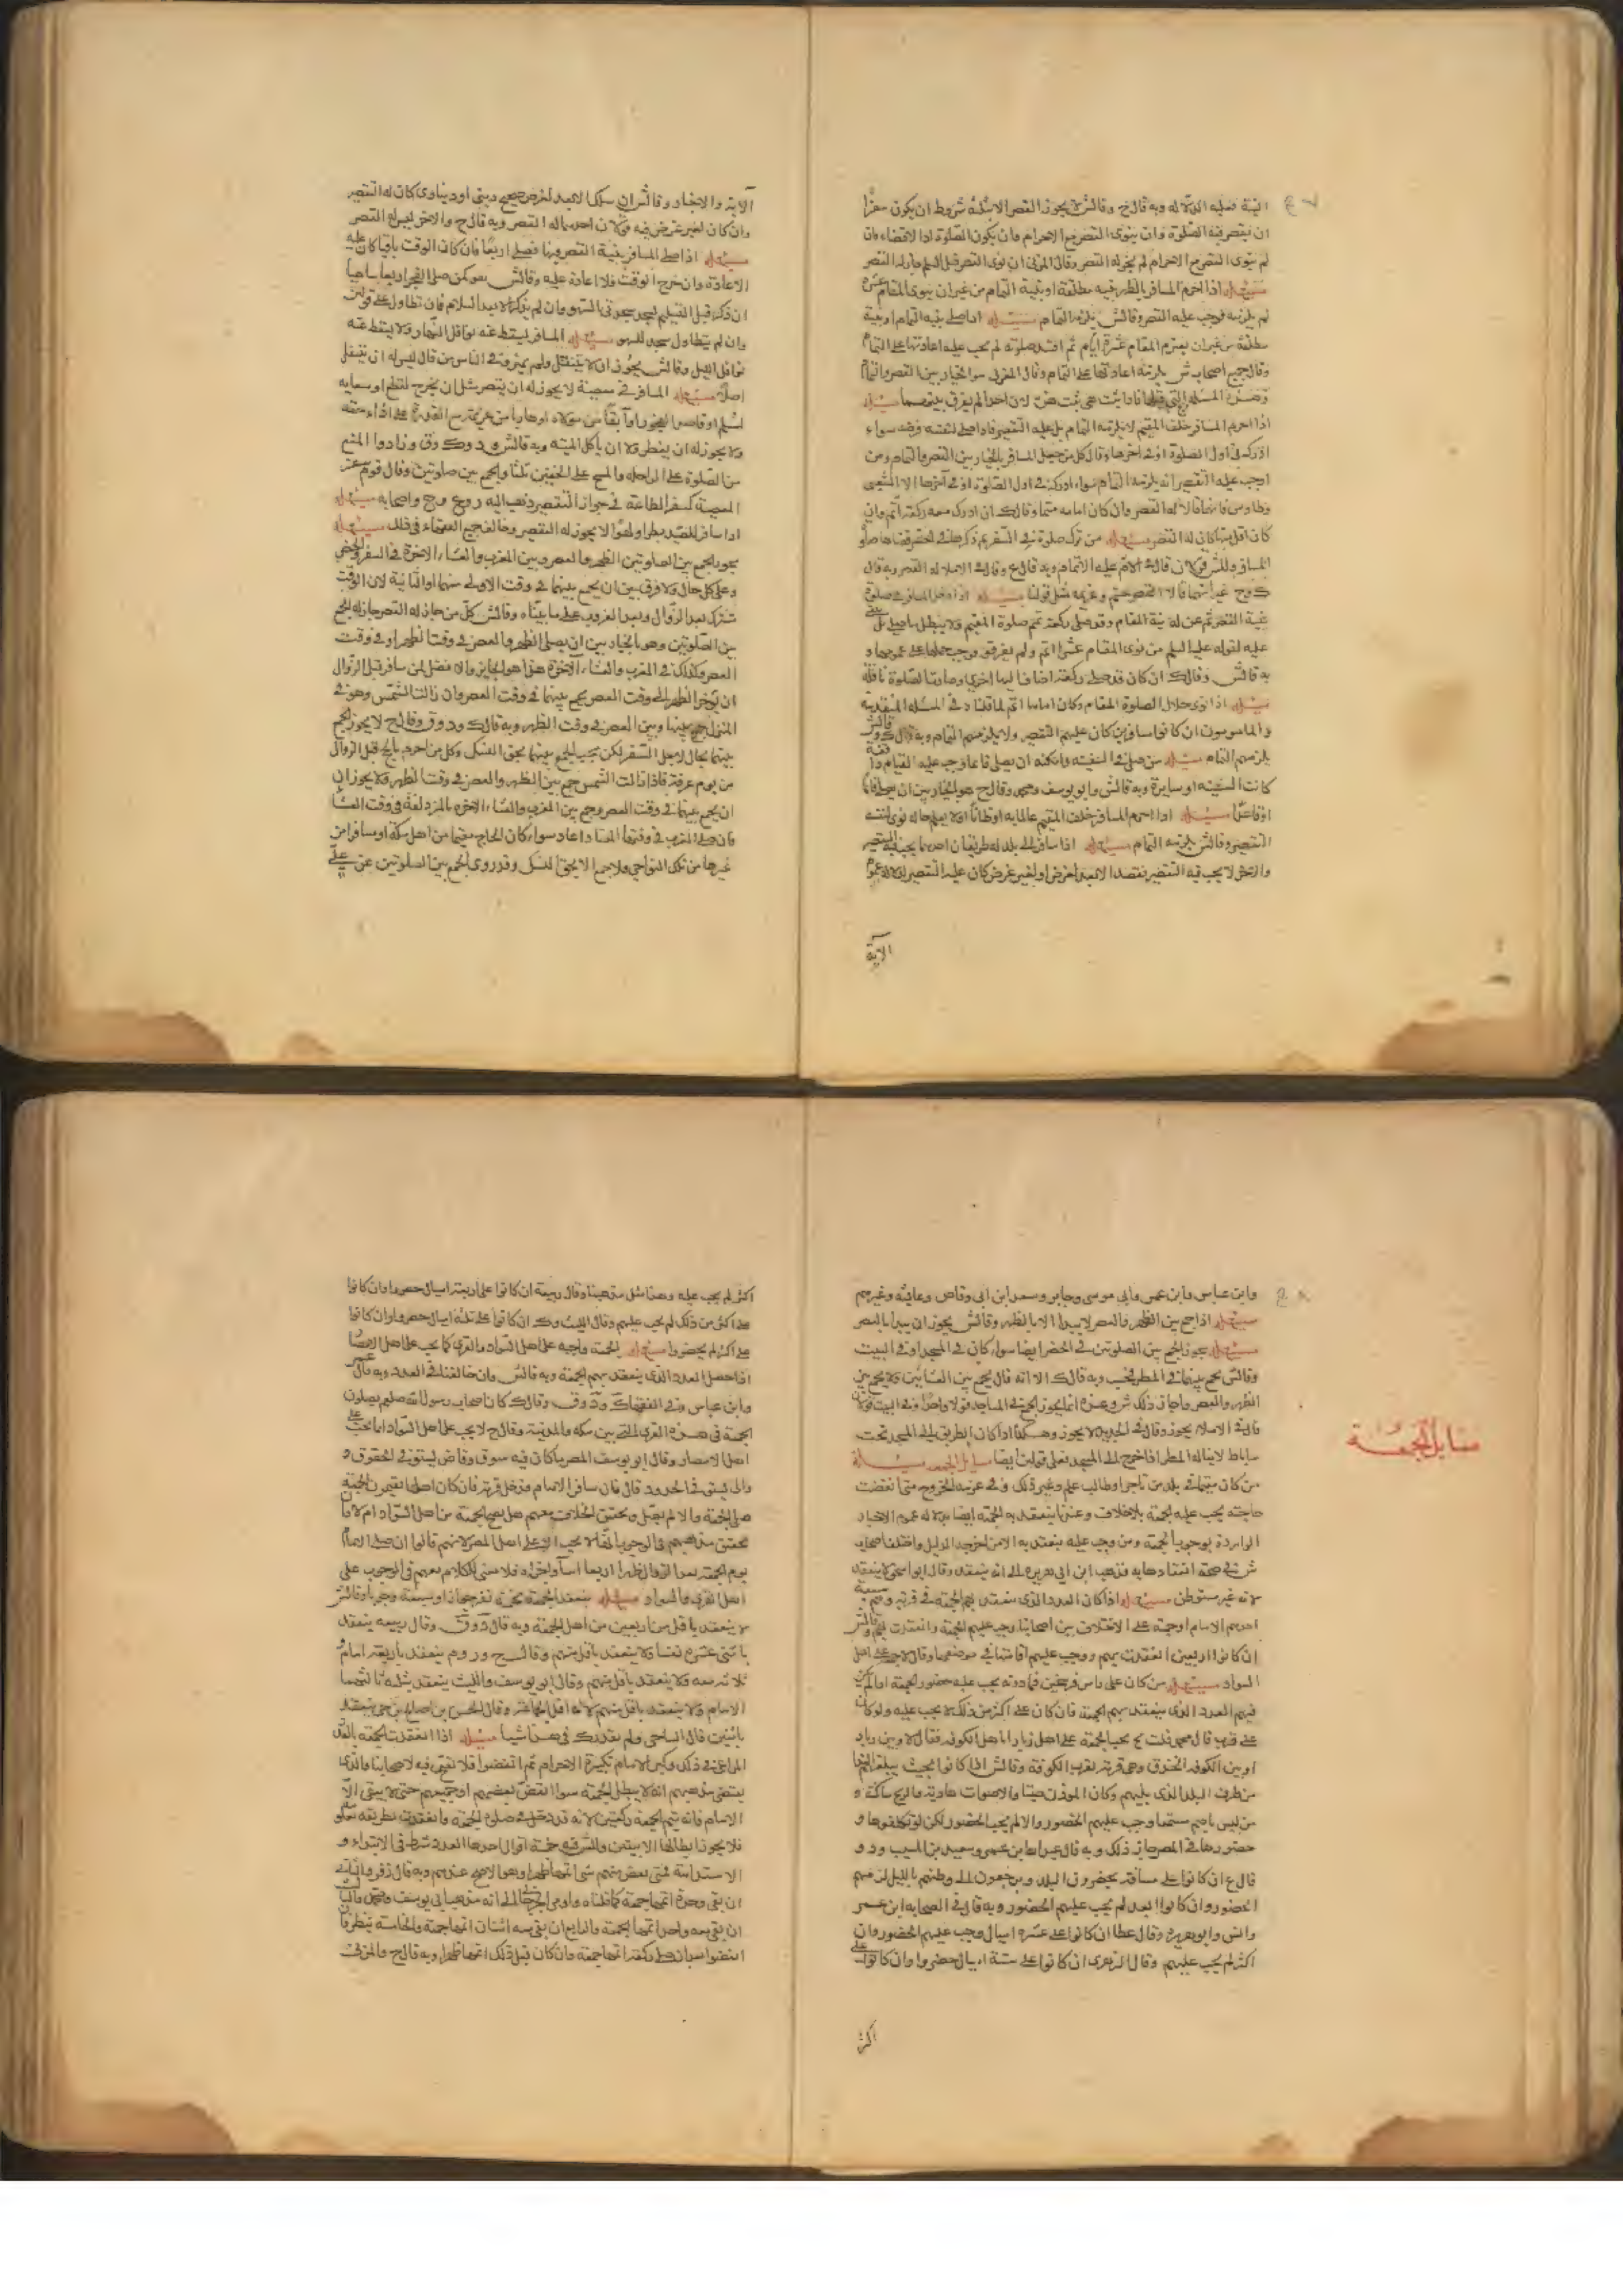 النية فعليه الدلالة وبه قال ح وقال ش لا يجوز القصر الا بثلثة شروط ان يكون سفرًا
ان يقصر فيه الصلوة وان ينوى القصر مع الاحرام وان يكون الصلوة ادا لا قضاء فان
لم ينوى القصر مع الاحرام لم يجز له القصر وقال المزنى ان نوى القصر قبل السلم جاز له القصر
مسئلة اذا احرم المسافر بالظهر بنية مطلقة او بنية التمام من غير ان ينوى المقام عشرة
لم يلزمه فوجب عليه القصر وقال ش يلزمه التمام مسئلة اذا صلى بنية التمام او بنية
مطلقة من غير ان يعزم المقام عشرة ايام ثم افسد صلوته لم يجب عليه اعادتها على التمام
وقال جميع اصحاب ش يلزمه اعادتها على التمام وقال المزنى سوا الخيار بين القصر والتمام
وهذه المسئلة التى قبلها فاذا ثبت هى ثبت هذه لان احدا لم يفرق بينهما مسئلة
اذا احرم المسافر خلف المقيم لا يلزمه التمام بل عليه التقصير فاذا صلى لنفسه فرضه سواء
ادركه فى اول الصلوة او فى اخرها وقال كل من جعل المسافر بالخيار بين القصر والتمام ومن
اوجب عليه التقصير انه يلزمه التمام سواء ادركه فى اول الصلوة او فى آخرها الا الشعبى
وطاوس فانهما قالا له القصر وان كان امامه متما وقال ك ان ادرك معه ركعة اتم وان
كان اقل منها كان له القصر مسئلة من ترك صلوة فى السفر ثم ذكرها فى الحضر قضاها صلوة
المسافر وللش قولان قال فى الام عليه الاتمام وبه قال ع وقال فى الاملا له القصر وبه قال
ك و ح غير انهما قالا القصر حتم وعزيمة مثل قولنا مسئلة اذا دخل المسافر فى صلوة
بنية القصر ثم عن له نية المقام وقد صلى ركعة تمم صلوة المقيم ولا يبطل ما صلى على
عليه لقوله عليه السلم من نوى المقام عشرا اتم ولم يفرقوا وجب حملها على عمومها و
به قال ش وقال ك ان كان قد صلى ركعة اضاف اليها اخرى وصارت الصلوة نافلة
مسئلة اذا نوى خلال الصلوة المقام وكان اماما اتم لما قلناه فى المسئلة المتقدمة
والمامومون ان كانوا مسافرين كان عليهم التقصير ولا يلزمهم التمام وبه قال ك وقال ش
يلزمهم التمام مسئلة من صلى فى السفينة وامكنه ان يصلى قائما وجب عليه القيام واقفة
كانت السفينة او سايرة وبه قال ش وابو يوسف ومحمد وقال ح هو بالخيار بين ان يصلى قائما
او قاعدا مسئلة اذا احرم المسافر خلف المقيم عالما به او ظانا او لا يعلم حاله نوى لنفسه
التقصير وقال ش يلزمه التمام مسئلة اذا سافر الى بلد له طريقان احدهما يجب فيه التقصير
والاخر لا يجب فيه التقصير فقصد الابعد لغرض او لغير غرض كان عليه التقصير لدلالة عموم
الآية
الآية والاخبار وقال ش ان سلك الابعد لغرض صحيح دينى او دنياوى كان له التقصير
وان كان لغير غرض فيه قولان احدهما له القصر وبه قال ح والاخر ليس له القصر
مسئلة اذا صلى المسافر بنية القصر فسها فصلى اربعا فان كان الوقت باقيا كان عليه
الاعادة وان خرج الوقت فلا اعادة عليه وقال ش هو كمن صلى الفجر اربعا ساهيا
ان ذكر قبل التسليم سجد سجدتى السهو وان لم يذكر الا بعد السلام فان تطاول على قولين
وان لم يتطاول سجد للسهو مسئلة المسافر يسقط عنه نوافل النهار ولا يسقط عنه
نوافل الليل وقال ش يجوز ان يتنفل ولم يميز وفى الناس من قال ليس له ان يتنفل
اصلا مسئلة المسافر فى معصية لا يجوز له ان يقصر مثل ان يخرج لقطع او سعاية
لمسلم او قاصدا لفجور او آبقا من مولاه او هاربا من غريمه مع القدرة على اداء حقه
ولا يجوز له ان يفطر ولا ان ياكل الميتة وبه قال ش و د و ك و ق وزادوا المنع
من الصلوة على الراحلة والمسح على الخفين ثلثا والجمع بين صلوتين وقال قوم سفر
المعصية كسفر الطاعة فى جواز التقصير ذهب اليه ر و ع و ح واصحابه مسئلة
اذا سافر للصيد بطرا او لهوا لا يجوز له التقصير وخالف جميع الفقهاء فى ذلك مسئلة
يجوز الجمع بين الصلوتين الظهر والعصر وبين المغرب والعشاء الاخرة فى السفر والحضر
وعلى كل حال ولا فرق بين ان يجمع بينهما فى وقت الاولى منهما او الثانية لان الوقت
مشترك بعد الزوال وبعد المغرب على ما بيناه وقال ش كل من جاز له القصر جاز له الجمع
بين الصلوتين وهو بالخيار بين ان يصلى الظهر والعصر فى وقت الظهر او فى وقت
العصر وكذلك فى المغرب والعشاء الآخرة هذا هو الجايز والافضل لمن سافر قبل الزوال
ان يؤخر الظهر الى وقت العصر يجمع بينهما فى وقت العصر وان زالت الشمس وهو فى
المنزل جمع بينها وبين العصر فى وقت الظهر وبه قال ك و د و ق وقال ح لا يجوز الجمع
بينهما بحال لاجل السفر لكن يجب الجمع بينهما بحق النسك وكل من احرم بالحج قبل الزوال
من يوم عرفة فاذا زالت الشمس جمع بين الظهر والعصر فى وقت الظهر ولا يجوز ان
يجمع بينهما فى وقت العصر وجمع بين المغرب والعشاء الاخرة بالمزدلفة فى وقت العشاء
فان صلى المغرب فى وقتها المعتاد اعاد سواء كان الحاج مقيما من اهل مكة او مسافرا من
غيرها من تلك النواحى ولا جمع الا بحق النسك وقد روى الجمع بين الصلوتين عن على
وابن عباس وابن عمر وابى موسى وجابر وسعد ابن ابى وقاص وعايشه وغيرهم
مسئلة اذا جمع بين الظهر والعصر لا يبدا الا بالظهر وقال ش يجوز ان يبدا بالعصر
مسئلة يجوز الجمع بين الصلوتين فى الحضر ايضا سواء كان فى المسجد او فى البيت
وقال ش يجمع بينهما فى المطر فحسب وبه قال ك الا انه قال يجمع بين العشائين ولا يجمع بين
الظهر والعصر
قال فى الاملا يجوز وقال فى الجديد لا يجوز وهكذا اذا كان الطريق الى المسجد تحت
ساباط لا يناله المطر اذا خرج الى المسجد فعلى قولين ايضا مسايل الجمعة مسئلة
مسايل الجمعة
من كان مقيما فى بلد من تاجر او طالب علم وغير ذلك وفى عزمه الخروج متى انقضت
حاجته يجب عليه الجمعة بلا خلاف وعندنا ينعقد به الجمعة ايضا بدلالة عموم الاخبار
الواردة بوجوب الجمعة ومن وجب عليه ينعقد به الا من اخرجه الدليل واختلف اصحاب
ش فى صحة انعقادها به فذهب ابن ابى هريرة الى انه ينعقد وقال ابو اسحق لا ينعقد
لانه غير مستوطن مسئلة اذا كان العدد الذى ينعقد بهم الجمعة فى قرية وهم سبعة
احدهم الامام او خمسة على الاختلاف بين اصحابنا وجب عليهم الجمعة وانعقدت بهم وقال ش
ان كانوا اربعين انعقدت بهم ووجب عليهم اقامتها فى موضعهم وقال ح لا يجب على اهل
السواد مسئلة من كان على راس فرسخين فما دونه يجب عليه حضور الجمعة اذا لم يكن
فيهم العدد الذى ينعقد بهم الجمعة فان كان على اكثر من ذلك لا يجب عليه ولو كان
على قريب قال محمد قلت ل ح يجب الجمعة على اهل زبارا باهل الكوفة فقال لا وبين زبارا
وبين الكوفة الخندق وهى قرية بقرب الكوفة وقال ش ان كانوا بحيث يبلغهم النداء
من طرف البلد الذى يليهم وكان المؤذن صيتا والاصوات هادية والريح ساكنة و
من ليس باصم مستمعا وجب عليهم الحضور والا لم يجب الحضور لكن لو تكلفوها و
حضورها فى المصر جاز ذلك وبه قال عبد الله بن عمرو وسعيد بن المسيب و د و
قال ع ان كانوا على مسافة يحضرون البلد ويرجعون الى وطنهم بالليل لزمهم
الحضور وان كانوا ابعد لم يجب عليهم الحضور وبه قال فى الصحابه ابن عمر
وانس وابو هريرة وقال عطا ان كانوا على عشرة اميال وجب عليهم الحضور وان
اكثر لم يجب عليهم وقال الزهرى ان كانوا على ستة اميال حضروا وان كانوا على
اكثر
اكثر لم يجب عليه وهذا مثل مذهبنا وقال ربيعة ان كانوا على اربعة اميال حضروا وان كانوا
على اكثر من ذلك لم يجب عليهم وقال الليث و ك ان كانوا على ثلثة اميال حضروا وان كانوا
على اكثر لم يحضروا مسئلة الجمعة واجبة على اهل السواد والقرى كما يجب على اهل الامصار
اذا حصل العدد الذى ينعقد بهم الجمعة وبه قال ش وان خالفنا فى العدد وبه قال عمر
وابن عباس وفى الفقهاء ك و د و ق وقال ك كان اصحاب رسول الله صلعم يصلون
الجمعة فى هذه القرى التى بين مكة والمدينة وقال ح لا يجب على اهل السواد انما يجب على
اهل الامصار وقال ابو يوسف المصر ما كان فيه سوق وقاض يستوفى الحقوق و
والى يستوفى الحدود قال فان سافر الامام فدخل قرية فان كان اهلها يقيمون الجمعة
صلى الجمعة والا لم يصل
يوم الجمعة بعد الزوال الظهر اربعا اسآء واجزاه فلا معنى للكلام معهم فى الوجوب على
اهل القرى والسواد مسئلة ينعقد الجمعة بخمسة نفر جوازا وسبعة وجوبا وقال ش
لا ينعقد باقل من اربعين من اهل الجمعة وبه قال د و ق وقال ربيعه ينعقد
باثنى عشر نفسا ولا ينعقد باقل منهم وقال ح و ر و م ينعقد باربعة امام و
ثلاثة معه ولا ينعقد باقل منهم وقال ابو يوسف والليث ينعقد بثلثة ثالثهما
الامام ولا ينعقد باقل منهم لانه اقل الجمع وقال الحسن بن صالح بن حى ينعقد
باثنين قال الساجى ولم يقدر ك فى هذا شيئا مسئلة اذا انعقدت الجمعة بالعدد
المراعى فى ذلك وكبر الامام تكبيرة الاحرام ثم انفضوا فلا نص فيه لاصحابنا والذى
يقتضى مذهبهم انه لا يبطل الجمعة سوا انفض بعضهم او جميعهم حتى لا يبقى الا
الامام فانه يتم الجمعة ركعتين لانه قد دخل فى صلوة الجمعة وانعقدت بطريقه معلومة
فلا يجوز ابطالها الا بيقين وللش فيه خمسة اقوال احدها العدد شرط فى الابتداء و
الاستدامة فمتى نقص منهم شى اتمها ظهرا وهو الاصح عندهم وبه قال زفر والثانى
ان بقى وحده اتمها جمعة كما قلناه
ان بقى معه واحد اتمها الجمعة والرابع ان بقى معه اثنان اتمها جمعة والخامسة ينظر فان
انفضوا بعد ان صلى ركعة اتمها جمعة وان كان قبل ذلك اتمها ظهرا وبه قال ح والمزنى